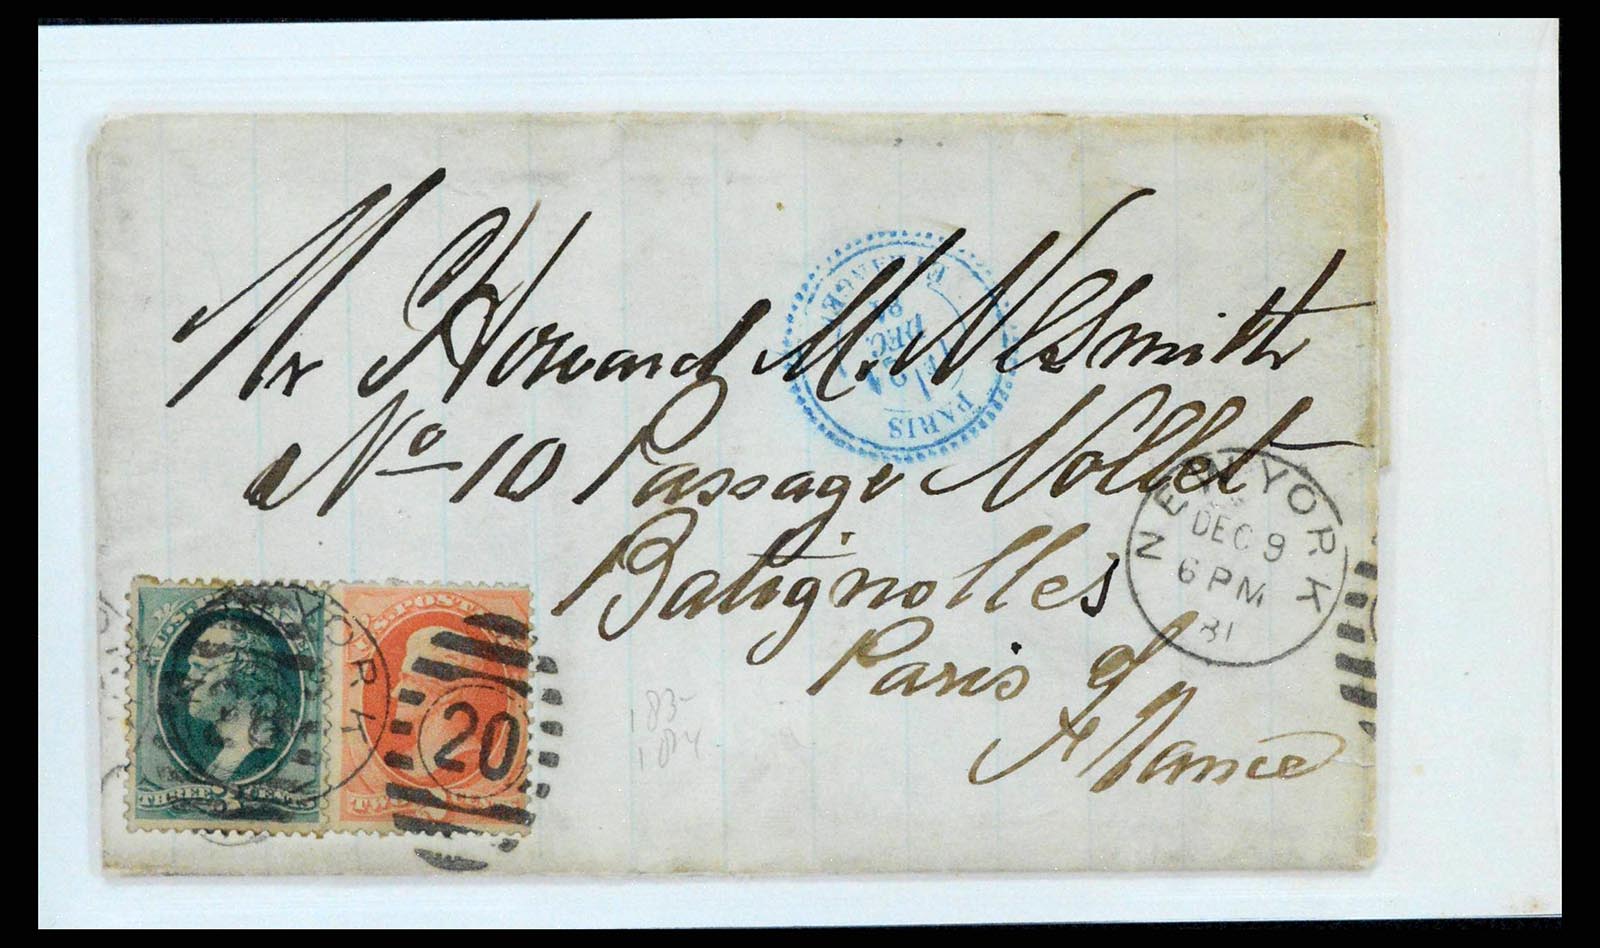 Mr Howard M. NeSmith
No 10 Passage Nollet
Batignolles
Paris
France
PARIS
ETRANGER
DEC
81
NEW YORK
DEC 9
6 PM
81
YORK
U.S. POSTAGE
THREE CENTS
U.S. POSTAGE
TWO CENTS
20
183-
184-